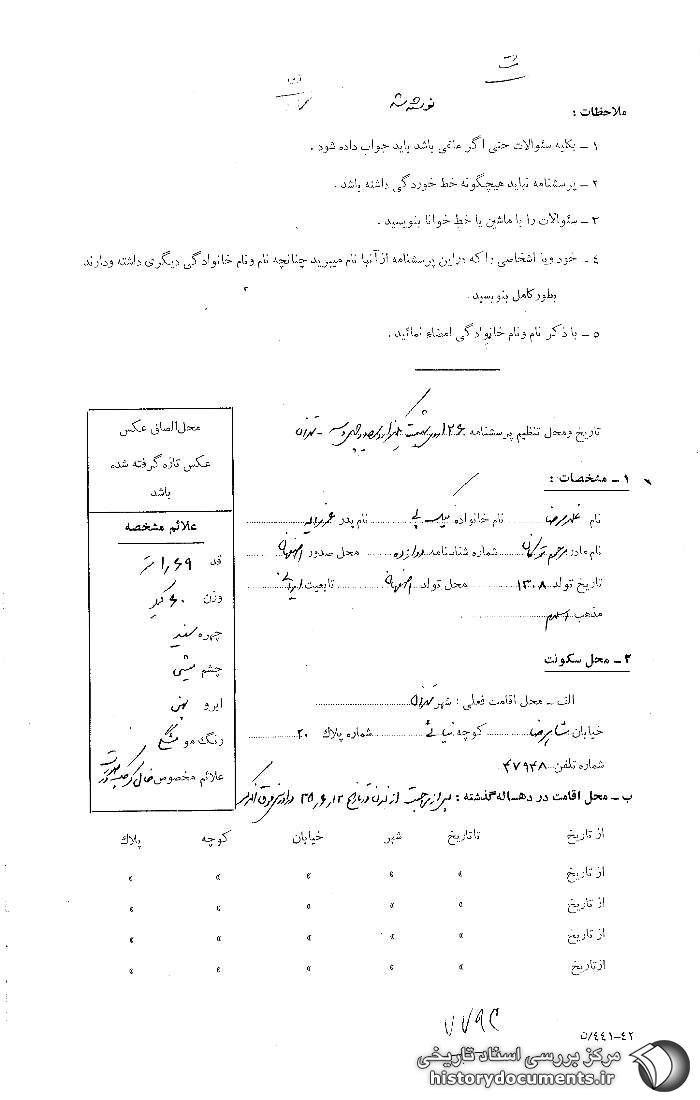 ملاحظات :
۱ ـ بکلیه سئوالات حتی اگر منفی باشد باید جواب داده شود .
۲ ـ پرسشنامه نباید هیچگونه خط خوردگی داشته باشد .
۳ ـ سئوالات را با ماشین یا خط خوانا بنویسید .
٤ ـ خود ویا اشخاصی را که دراین پرسشنامه ازآنها نام میبرید چنانچه نام ونام خانوادگی دیگری داشته ودارند
بطور کامل بنویسید .
٥ ـ با ذکر نام ونام خانوادگی امضاء نمائید .
تاریخ ومحل تنظیم پرسشنامه ۱۲۶ ـ تهران
محل الصاق عکس
عکس تازه گرفته شده
باشد
علائم مشخصه
قد ۱٫۶۹ متر
وزن ۶۰ کیلو
چهره سفید
چشم میشی
ابرو پهن
رنگ مو مشکی
علائم مخصوص خال
۱ ـ مشخصات :
نام غلامرضا نام خانواده نیک پی نام پدر عزیزاله
نام مادر مریم شماره شناسنامه دوازده محل صدور اصفهان
تاریخ تولد ۱۳۰۸ محل تولد اصفهان تابعیت ایرانی
مذهب اسلام
۲ ـ محل سکونت
الف ـ محل اقامت فعلی : شهر تهران
خیابان شاهرضا کوچه نیائی شماره پلاك ۲۰
شماره تلفن ۴۷۹۴۸
ب ـ محل اقامت در دهساله گذشته : پس از مراجعت از لندن در تاریخ ۳۵٫۶٫۱۲ در آدرس فوق
از تاریخ تاتاریخ شهر خیابان کوچه پلاك
از تاریخ » » » » »
از تاریخ » » » » »
از تاریخ » » » » »
از تاریخ » » » » »
۷۷۹۲
۴۲-٤٤۱/ن
مرکز بررسی اسناد تاریخی
historydocuments.ir